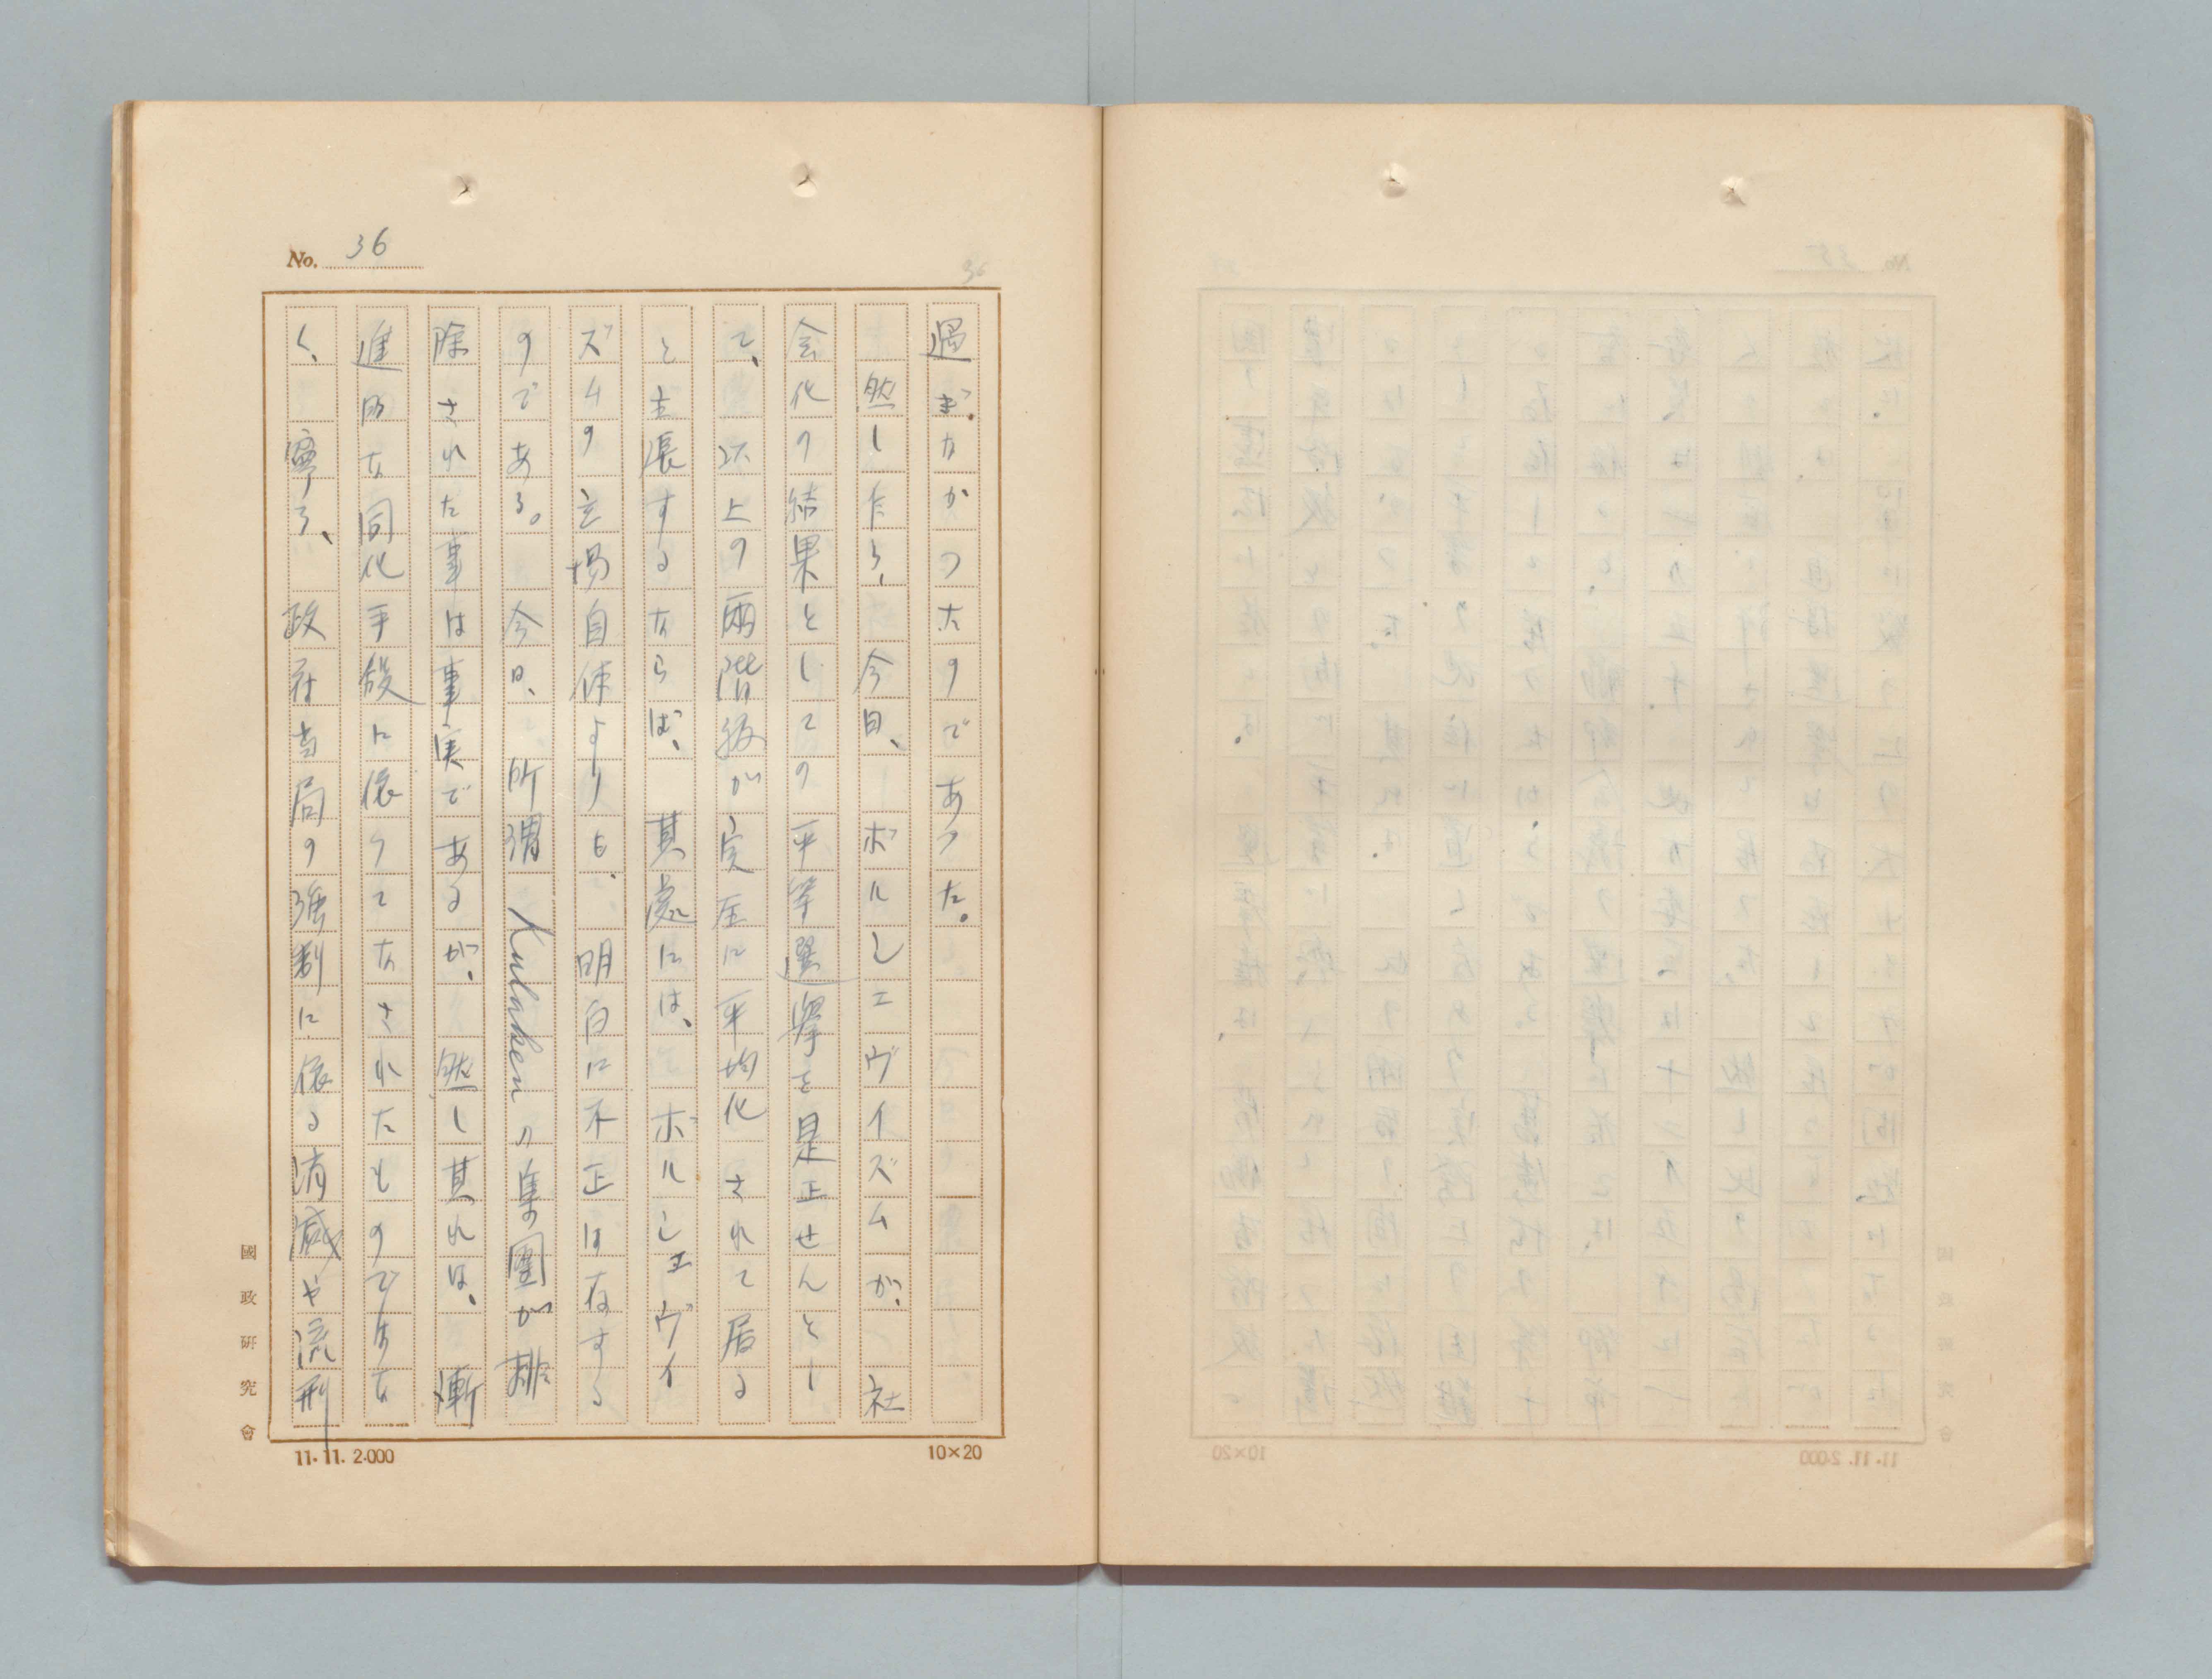 No. 36
36
過ぎなかつたのであつた。
然したら、今日、ボルシエヴイズムが、社
会化の結果としての平等選挙を是正せんとし
て、以上の両階級が完全に平均化されて居る
と主張するならば、其處には、ボルシエヴイ
ズムの立場自体よりも、明白に不正は存する
のである。今日、所謂Kulakenの集團が排
除された事は事実であるが、然し其れは、漸
進的な同化手段に依つてなされたものではな
く、寧ろ、政府当局の強制に依る消滅や流刑
國政研究會
11.11.2.000
10×20